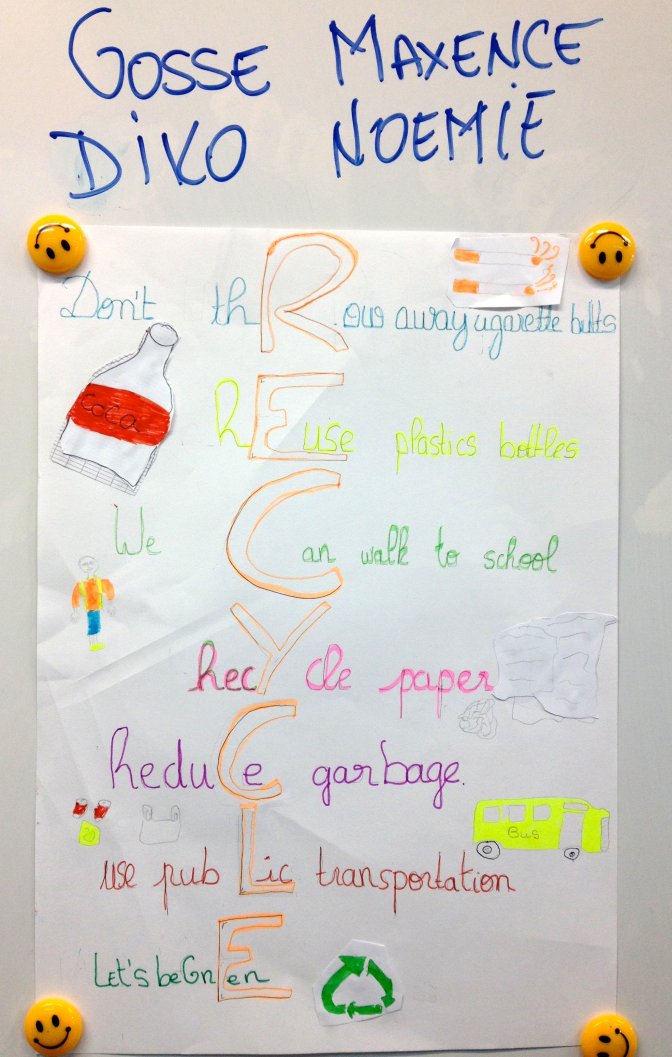 GOSSE MAXENCE
DiKO NOEMiE
Don't thRow away cigarette butts
coca
REuse plastics bottles
We Can walk to school
RecYcle paper
ReduCe garbage.
Bus
use pubLic transportation
Let's be GrEen